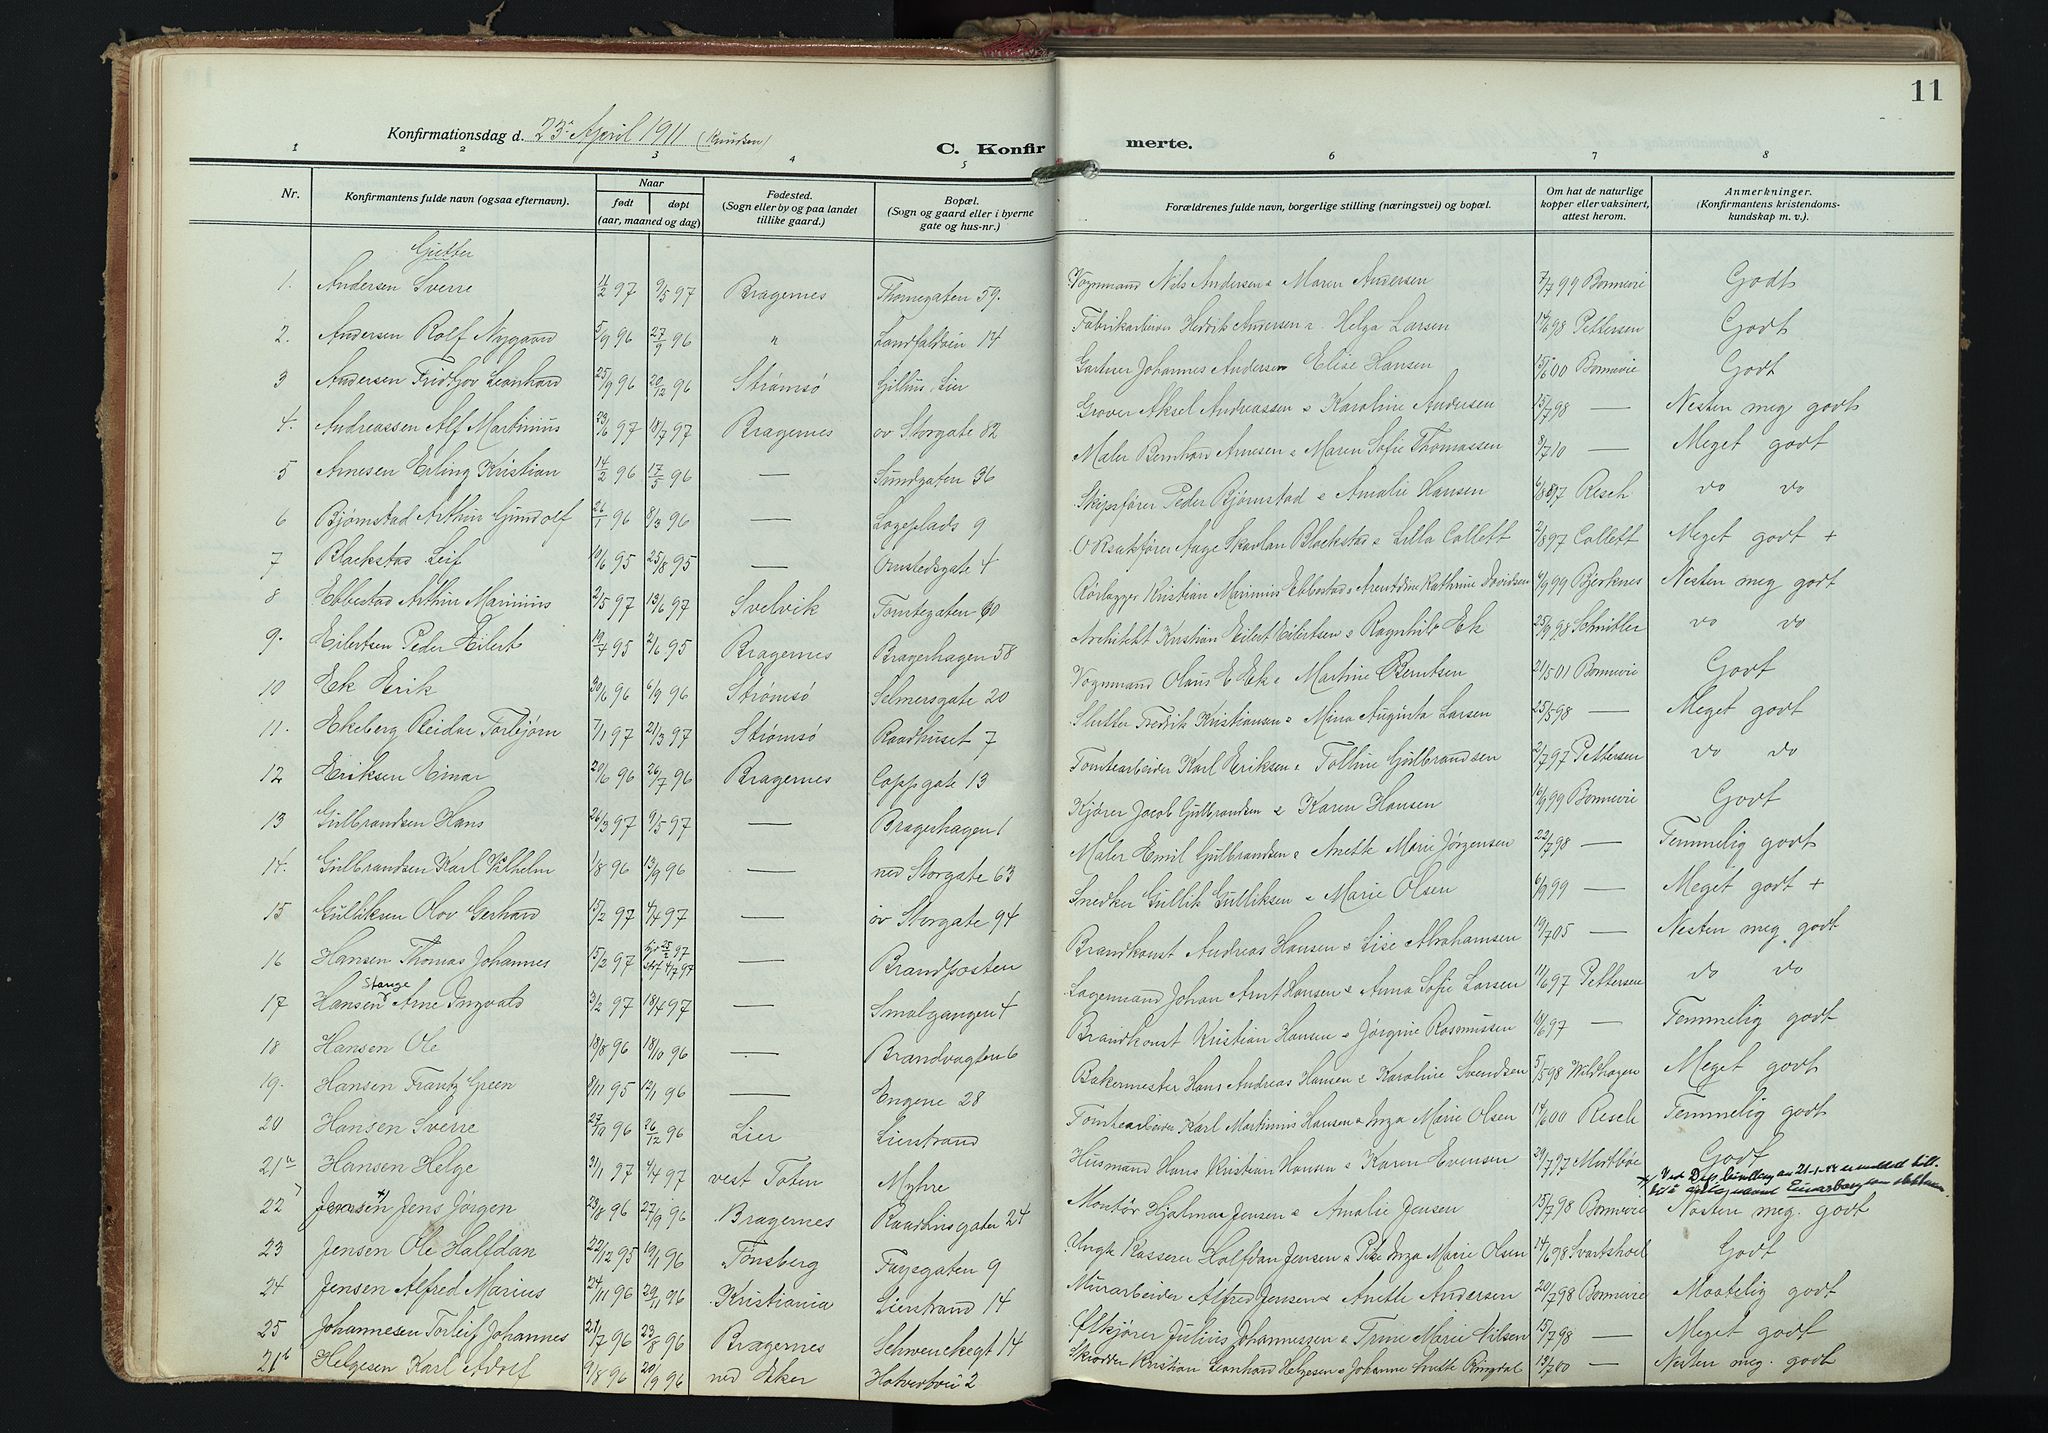 11
Konfirmationsdag d. 23. April 1911 (Knudsen)
C. Konfirmerte.
1 2 3 4 5 6 7 8
Nr. Konfirmantens fulde navn (ogsaa efternavn). Naar født døpt (aar, maaned og dag) Fødested. (Sogn eller by og paa landet tillike gaard.) Bopæl. (Sogn og gaard eller i byerne gate og hus-nr.) Forældrenes fulde navn, borgerlige stilling (næringsvei) og bopæl. Om hat de naturlige kopper eller vaksinert, attest herom. Anmerkninger. (Konfirmantens kristendomskundskap m. v.).
Gutter
1. Andersen Sverre 11/2 97 9/5 97 Bragernes Thornegaten 59. Vognmand Nils Andersen & Maren Andersen 7/7 99 Bonnevie Godt
2. Andersen Rolf Nygaard 5/9 96 27/9 96 " Landfaldvein 14 Fabrikarbeider Hedrik Andersen & Helga Larsen 14/6 98 Pettersen Godt
3 Andersen Fridtjov Leonhard 25/9 96 20/12 96 Strømsö Gilhus, Lier Gartner Johannes Andersen Elise Hansen 15/6 00 Bonnevie Godt
4. Andreassen Alf Martinius 23/6 97 18/7 97 Bragernes öv Storgate 82 Graver Aksel Andreassen & Karoline Andersen 15/7 98 — Nesten meg godt
5 Arnesen Erling Kristian 14/2 96 17/5 96 — Sundgaten 36 Maler Bernhard Arnesen & Maren Sofie Thomassen 8/7 10 — Meget godt
6 Bjørnstad Arthur Gundolf 26/1 96 8/3 96 — Logeplads 9 Skipsfører Peder Bjørnstad & Amalie Hansen 6/8 97 Resch do do
7 Blackstad Leif 10/6 95 25/8 95 — Ornstedsgate 4 O R sakfører Aage Skavlan Blackstad & Lilla Collett 2/8 97 Collett Meget godt +
8 Ebbestad Arthur Marinius 2/5 97 13/6 97 Svelvik Tomtegaten 60 Rörlægger Kristian Marinius Ebbestad & Arentdine Kathrine Davidsen 4/9 99 Bjerknes Nesten meg godt
9. Eilertsen Peder Eilert 19/4 95 2/6 95 Bragernes Bragerhagen 58 Architekt Kristian Eilert Eilertsen & Ragnhild Ek 25/9 98 Schnitler do do
10 Ek Erik 30/6 96 6/9 96 Strømsö Selmersgate 20 Vognmand Olaus E Ek & Martine Berntsen 21/5 01 Bonnevie Godt
11. Ekeberg Reidar Torbjørn 7/1 97 21/3 97 Strømsö Raadhuset 7 Slutter Fredrik Kristiansen & Mina Augusta Larsen 25/5 98 — Meget godt
12 Eriksen Einar 20/6 96 26/7 96 Bragernes Coppgate 13 Tomtearbeider Karl Eriksen & Talline Gulbrandsen 2/7 97 Pettersen do do
13 Gulbrandsen Hans 26/3 97 9/5 97 — Bragerhagen 1 Kjører Jacob Gulbrandsen & Karen Hansen 16/9 99 Bonnevie Godt
14. Gulbrandsen Karl Vilhelm 1/8 96 13/9 96 — ned Storgate 63 Maler Emil Gulbrandsen & Anette Marie Jørgensen 22/7 98 — Temmelig godt
15 Gulliksen Olav Gerhard 15/2 97 4/4 97 — öv Storgate 94 Snedker Gullik Gulliksen & Marie Olsen 6/9 99 — Meget godt +
16 Hansen Thomas Johannes 15/2 97 25/2 97 4/7 97 — Brandposten Brandkonst Andreas Hansen & Lise Abrahamsen 19/7 05 — Nesten meg. godt
17 Hansen Stange Arne Ingvald 3/2 97 18/4 97 — Smalgangen 4 Lagermand Johan Arnt Hansen & Anna Sofie Larsen 11/6 97 Pettersen do do
18 Hansen Ole 18/8 96 18/10 96 — Brandvagten 6 Brandkonst Kristian Hansen & Jørgine Rasmussen 18/6 97 — Temmelig godt
19. Hansen Frantz Green 8/11 95 12/1 96 — Engene 28 Bakermester Hans Andreas Hansen & Karoline Svendsen 5/5 98 Wildhagen Meget godt
20 Hansen Sverre 27/10 96 26/12 96 Lier Lierstrand Tomtearbeider Karl Martinius Hansen & Inga Marie Olsen 14/6 00 Resch Temmelig godt
21a Hansen Helge 31/1 97 4/4 97 vest Toten Myhre Husmand Hans Kristian Hansen & Karen Evensen 29/7 97 Midtbøe Godt
x) Ved Dep. bevilling av 21-1-
22 Jensen x) Jens Jørgen 23/8 96 27/9 96 Bragernes Raadhusgaten 24 Montör Hjalmar Jensen & Amalie Jensen 15/7 98 Bonnevie Nesten meg. godt
23 Jensen Ole Halfdan 22/12 95 19/1 96 Tønsberg Fayesgaten 9 Ungk Kasserer Halfdan Jensen & Pike Inga Marie Olsen 14/6 98 Svartshoel Godt
24 Jensen Alfred Marius 24/11 96 29/11 96 Kristiania Lierstrand 14 Murarbeider Alfred Jensen & Anette Andersen 20/7 98 Bonnevie Maatelig godt
25 Johannesen Torleif Johannes 21/7 96 23/8 96 Bragernes Schwenckegt 14 Ølkjører Julius Johannessen & Trine Marie Nilsen 15/7 98 — Meget godt
21b Helgesen Karl Adolf 9/8 96 20/9 96 ned Eker Hotvedtvei 2 Skrædder Kristian Leonhard Helgesen & Johanne Anette Ringdal 18/7 00 — Nesten meg. godt